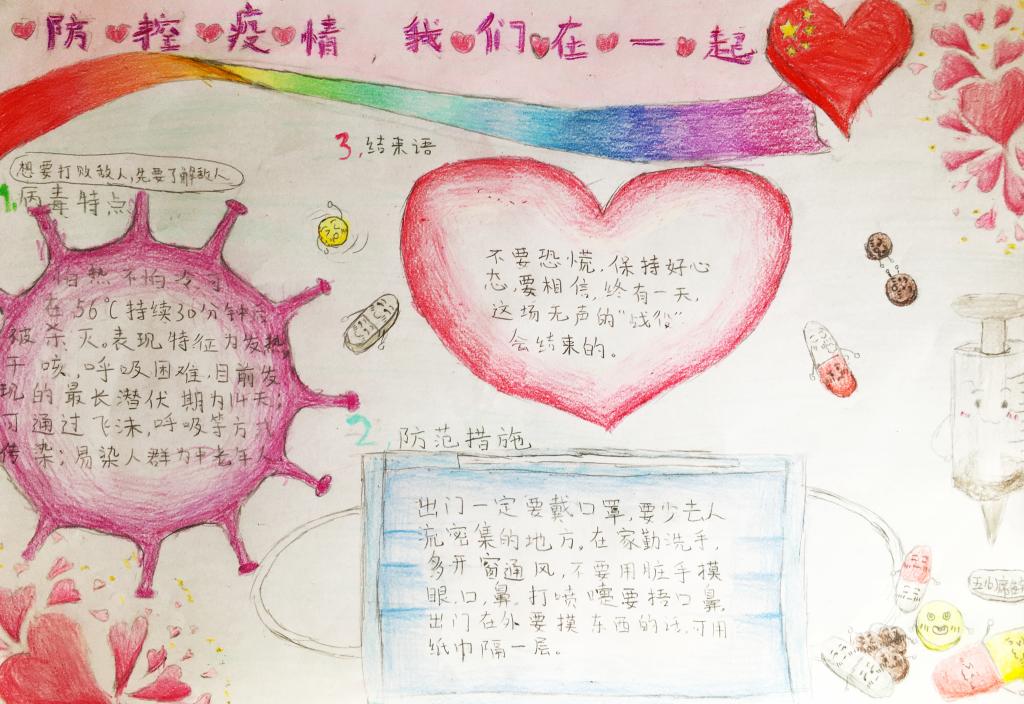 防控疫情 我们在一起
3,结束语
想要打败敌人,先要了解敌人
1.病毒特点
怕热不怕冷,
在56℃持续30分钟
被杀灭。表现特征为发热,
干咳,呼吸困难,目前发
现的最长潜伏期为14天;
可通过飞沫,呼吸等方式
传染;易染人群为中老年人
不要恐慌,保持好心
态,要相信,终有一天,
这场无声的“战役”
会结束的。
2,防范措施
出门一定要戴口罩,要少去人
流密集的地方。在家勤洗手,
多开窗通风,不要用脏手摸
眼,口,鼻,打喷嚏要捂口鼻,
出门在外要摸东西的话,可用
纸巾隔一层。